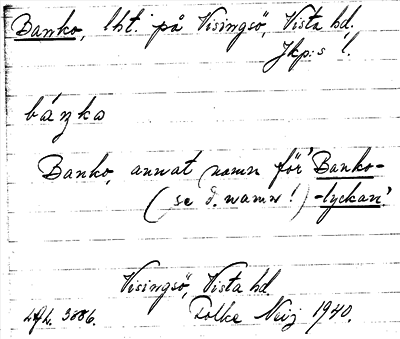 Banko, lht. på Visingsö, Vista hd.
Jkp:s l.
báŋko
Banko, annat namn för 'Banko-
(se d. namn!) -lyckan'.
Visingsö, Vista hd.
Folke Neij 1940.